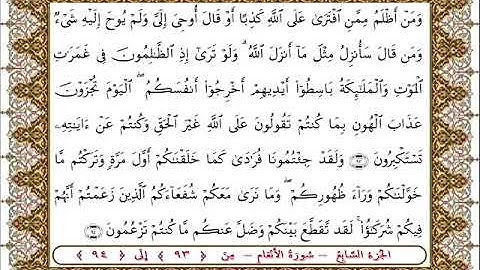 وَمَنْ أَظْلَمُ مِمَّنِ ٱفْتَرَىٰ عَلَى ٱللَّهِ كَذِبًا أَوْ قَالَ أُوحِىَ إِلَىَّ وَلَمْ يُوحَ إِلَيْهِ شَىْءٌ
وَمَن قَالَ سَأُنزِلُ مِثْلَ مَآ أَنزَلَ ٱللَّهُ ۗ وَلَوْ تَرَىٰٓ إِذِ ٱلظَّـٰلِمُونَ فِى غَمَرَٰتِ
ٱلْمَوْتِ وَٱلْمَلَـٰٓئِكَةُ بَاسِطُوٓا۟ أَيْدِيهِمْ أَخْرِجُوٓا۟ أَنفُسَكُمُ ۖ ٱلْيَوْمَ تُجْزَوْنَ
عَذَابَ ٱلْهُونِ بِمَا كُنتُمْ تَقُولُونَ عَلَى ٱللَّهِ غَيْرَ ٱلْحَقِّ وَكُنتُمْ عَنْ ءَايَـٰتِهِۦ
تَسْتَكْبِرُونَ ﴿٩٣﴾ وَلَقَدْ جِئْتُمُونَا فُرَٰدَىٰ كَمَا خَلَقْنَـٰكُمْ أَوَّلَ مَرَّةٍ وَتَرَكْتُم مَّا
خَوَّلْنَـٰكُمْ وَرَآءَ ظُهُورِكُمْ ۖ وَمَا نَرَىٰ مَعَكُمْ شُفَعَآءَكُمُ ٱلَّذِينَ زَعَمْتُمْ أَنَّهُمْ
فِيكُمْ شُرَكَـٰٓؤُا۟ ۚ لَقَد تَّقَطَّعَ بَيْنَكُمْ وَضَلَّ عَنكُم مَّا كُنتُمْ تَزْعُمُونَ ﴿٩٤﴾
الجزء السابع – سورة الأنعام – من ﴿ ٩٣ ﴾ إلى ﴿ ٩٤ ﴾